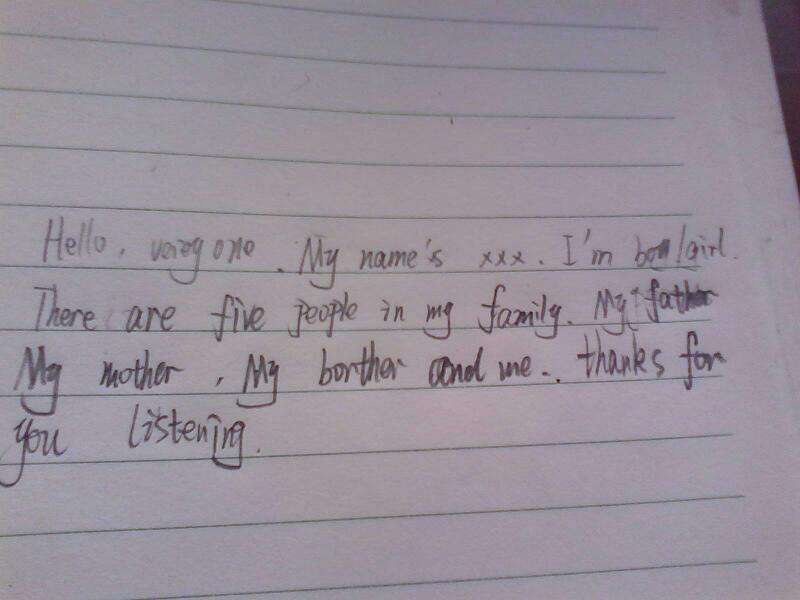 Hello, veregone. My name's xxx. I'm boy/girl.
There are five people in my family. My father
My mother, My borther and me.. thanks for
you listening.